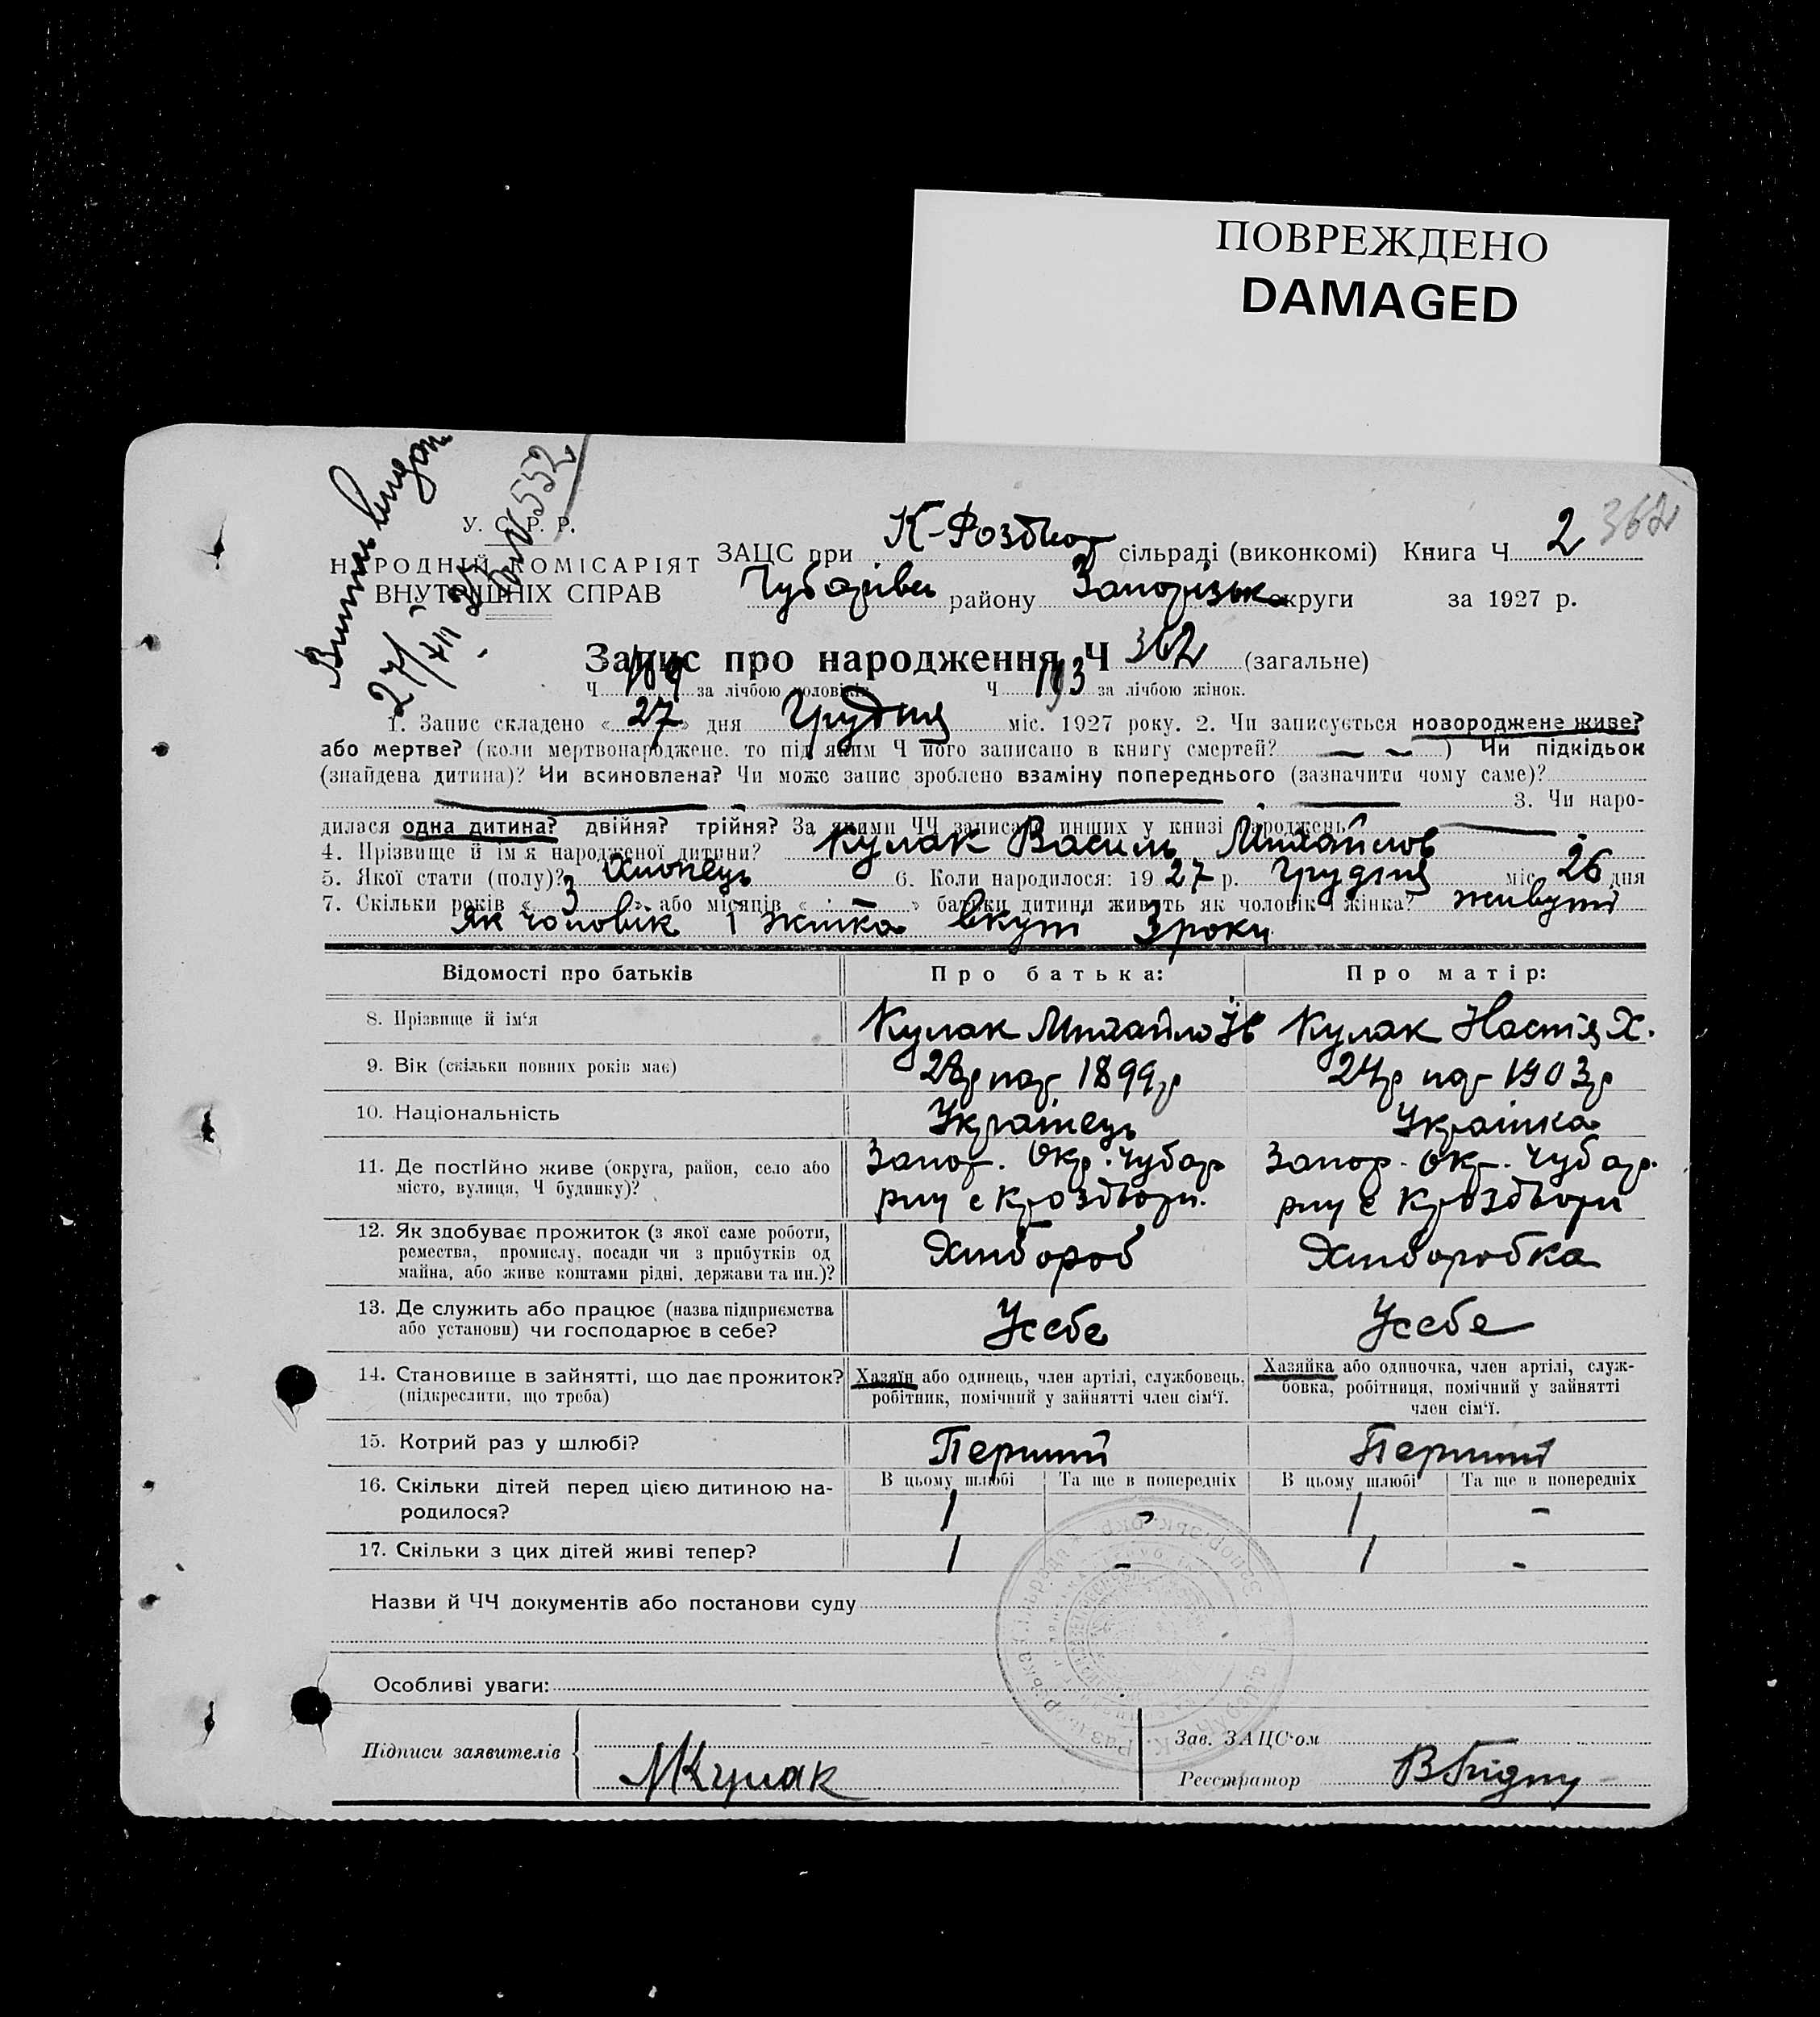 ПОВРЕЖДЕНО
DAMAGED
362
У. С. Р. Р.
НАРОДНІЙ КОМІСАРІЯТ
ВНУТРІШНІХ СПРАВ
552
27/XII
ЗАЦС при К-Розбіор сільраді (виконкомі) Книга Ч 2
Чубарівс району Запорізьк округи за 1927 р.
Запис про народження Ч 362 (загальне)
Ч 189 за лічбою чоловіків Ч 173 за лічбою жінок.
1. Запис складено « 27 » дня Грудня міс. 1927 року. 2. Чи записується новороджене живе?
або мертве? (коли мертвонароджене, то під яким Ч його записано в книгу смертей? — — ) Чи підкідьок
(знайдена дитина)? Чи всиновлена? Чи може запис зроблено взаміну попереднього (зазначити чому саме)?
3. Чи наро-
дилася одна дитина? двійня? трійня? За якими ЧЧ записано инших у книзі народжень
4. Прізвище й ім'я народженої дитини? Кулак Василь Михайлов
5. Якої стати (полу)? Хлопець 6. Коли народилося: 19 27 р. Грудня міс. 26 дня
7. Скільки років « 3 » або місяців « - » батьки дитини живуть як чоловік і жінка? живуть
як чоловік і жінка вкупі 3 роки
Відомості про батьків Про батька: Про матір:
8. Прізвище й ім'я Кулак Михайло Ів Кулак Настія Х.
9. Вік (скільки повних років має) 28р нар 1899р 24р нар 1903р
10. Національність Українець Українка
11. Де постІйно живе (округа, район, село або Запор. Окр. Чубар Запор. Окр. Чубар.
місто, вулиця, Ч будинку)? рну с Крозбори. рну с Крозбори
12. Як здобуває прожиток (з якої саме роботи,
ремества, промислу, посади чи з прибутків од Хлібороб Хліборобка
майна, або живе коштами рідні, держави та ин.)?
13. Де служить або працює (назва підприємства Усебе Усебе
або установи) чи господарює в себе?
14. Становище в зайнятті, що дає прожиток? Хазяїн або одинець, член артілі, службовець, Хазяйка або одиночка, член артілі, служ-
(підкреслити, що треба) робітник, помічний у зайнятті член сім'ї. бовка, робітниця, помічний у зайнятті
член сім'ї.
15. Котрий раз у шлюбі? Перший Перший
16. Скільки дітей перед цією дитиною на- В цьому шлюбі Та ще в попередніх В цьому шлюбі Та ще в попередніх
родилося? 1 - 1 -
17. Скільки з цих дітей живі тепер? 1 - 1 -
Назви й ЧЧ документів або постанови суду
Особливі уваги:
Підписи заявителів МКулак
Зав. ЗАЦС'ом
Реєстратор